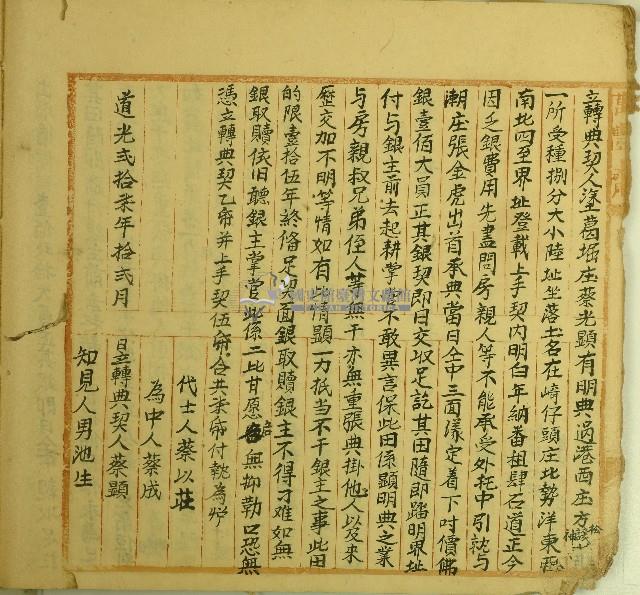 立轉典契人塗葛堀庄蔡光顕有明典過港西庄方
一所受種捌分大小陸坵坐落土名在崎仔頭庄北勢洋東西
南北四至界址登載上手契內明白年納番租肆石道正今
因乏銀費用先盡問房親人等不能承受外托中引就与
潮庄張金虎出首承典當日仝中三面議定着下时價佛
銀壹佰大員正其銀契即日交收足訖其田隨即踏明界址
付与銀主前去起耕掌不敢異言保此田係顕明典之業
与房親叔兄弟侄人等無干亦無重張典掛他人以及来
歷交加不明等情如有此情顕一力抵当不干銀主之事此田
的限壹拾伍年終備足面銀取贖銀主不得刁难如無
銀取贖依旧聽銀主掌管此係二比甘愿各無抑勒口恐無
憑立轉典契乙帋并上手契伍帋合共柒帋付執為炤
代士人蔡以莊
為中人蔡成
道光弍拾柒年拾弍月
日立轉典契人蔡顕
知見人男池生
國史館臺灣文獻館